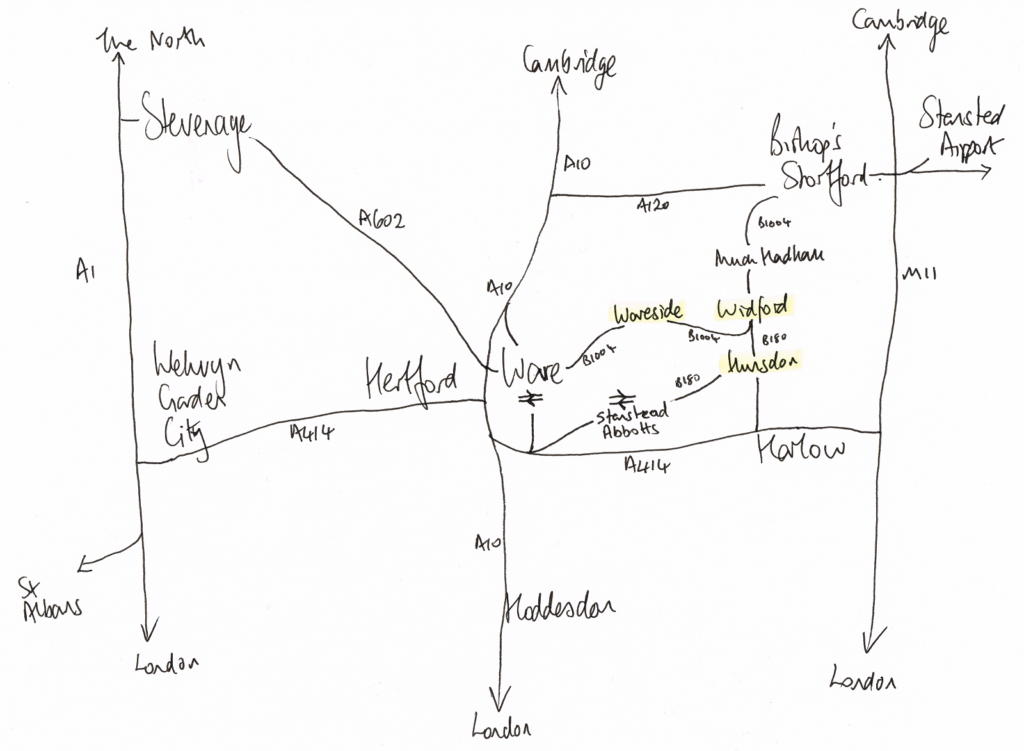 The North
Cambridge
Cambridge
Stevenage
Stansted
Airport
Bishop's
Stortford
A10
A120
B1004
A602
Much Hadham
A1
M11
A10
Wareside
Widford
B1004
B1004
B180
Welwyn
Garden
City
Hertford
Ware
Hunsdon
B180
Stanstead
Abbotts
A414
A414
Harlow
A10
St
Albans
Hoddesdon
London
London
London